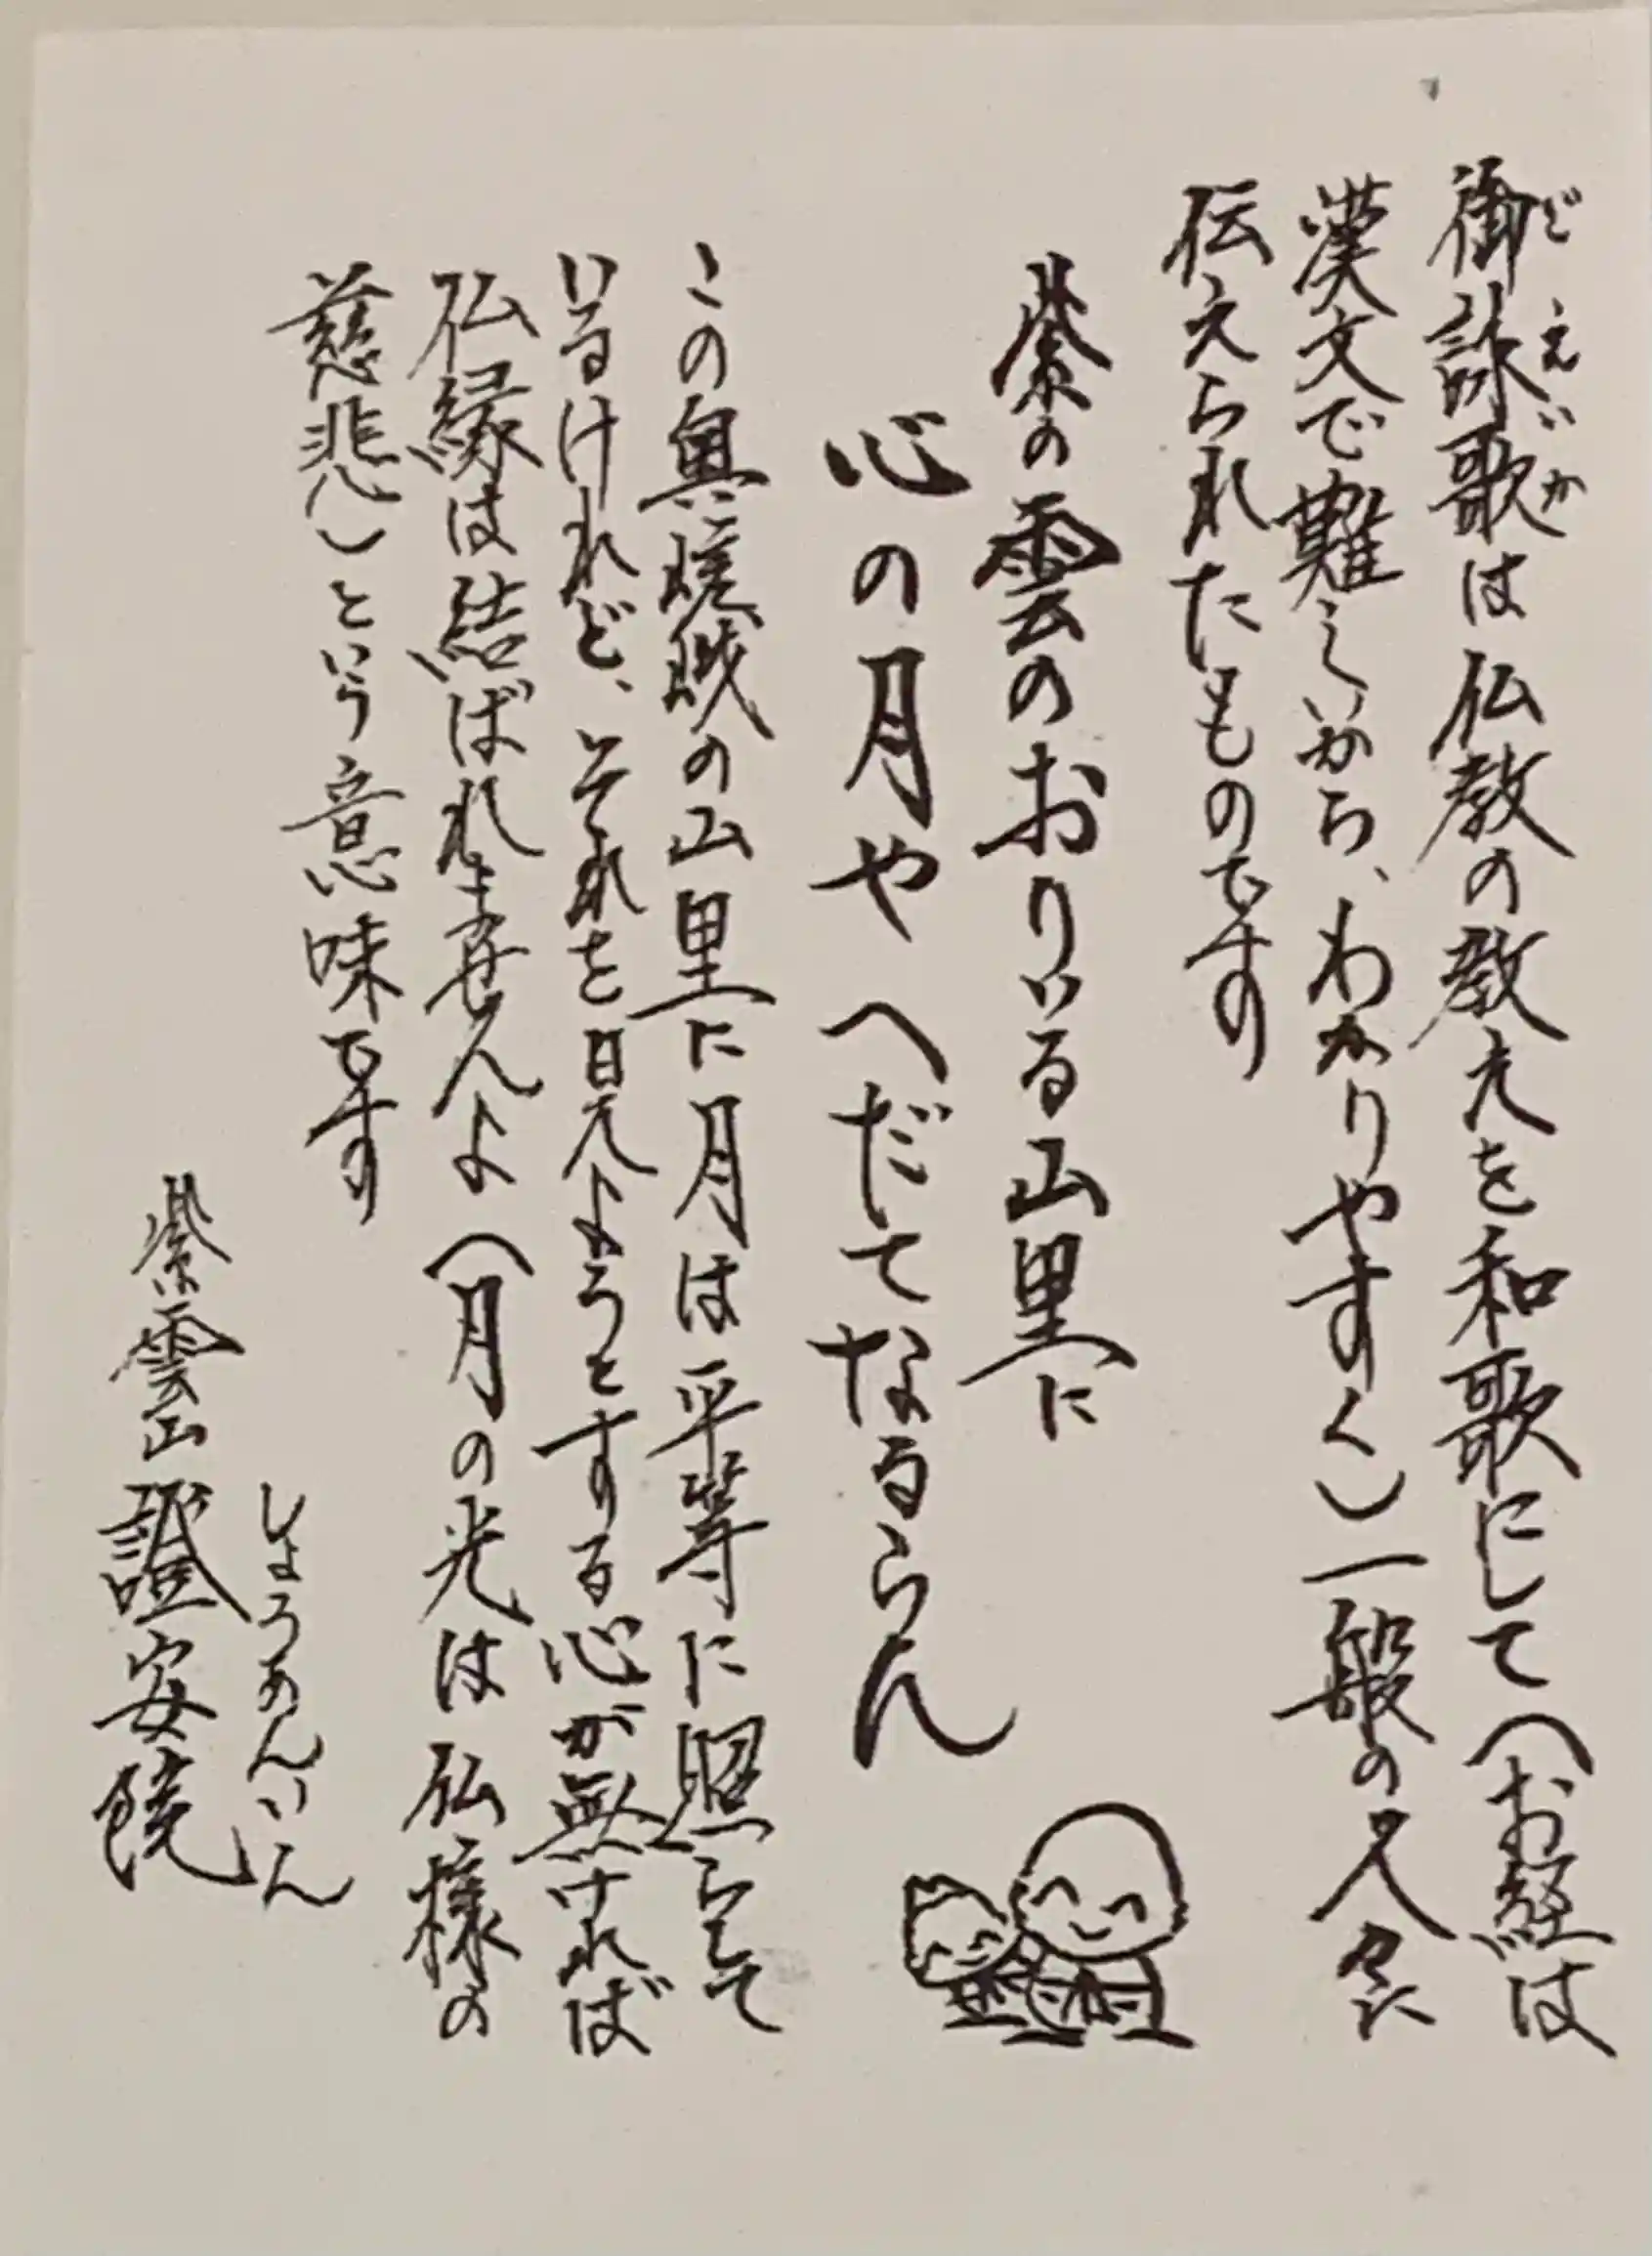 御詠歌は仏教の教えを和歌にして（お経は
ごえいか
漢文で難しいから、わかりやすく）一般の人々に
伝えられたものです
紫の雲のおりいる山里に
心の月や へだてなるらん
この奥嵯峨の山里に月は平等に照らして
いるけれど、それを見ようとする心が無ければ
仏縁は結ばれませんよ（月の光は仏様の
慈悲）という意味です
紫雲山 證安院
しょうあんいん